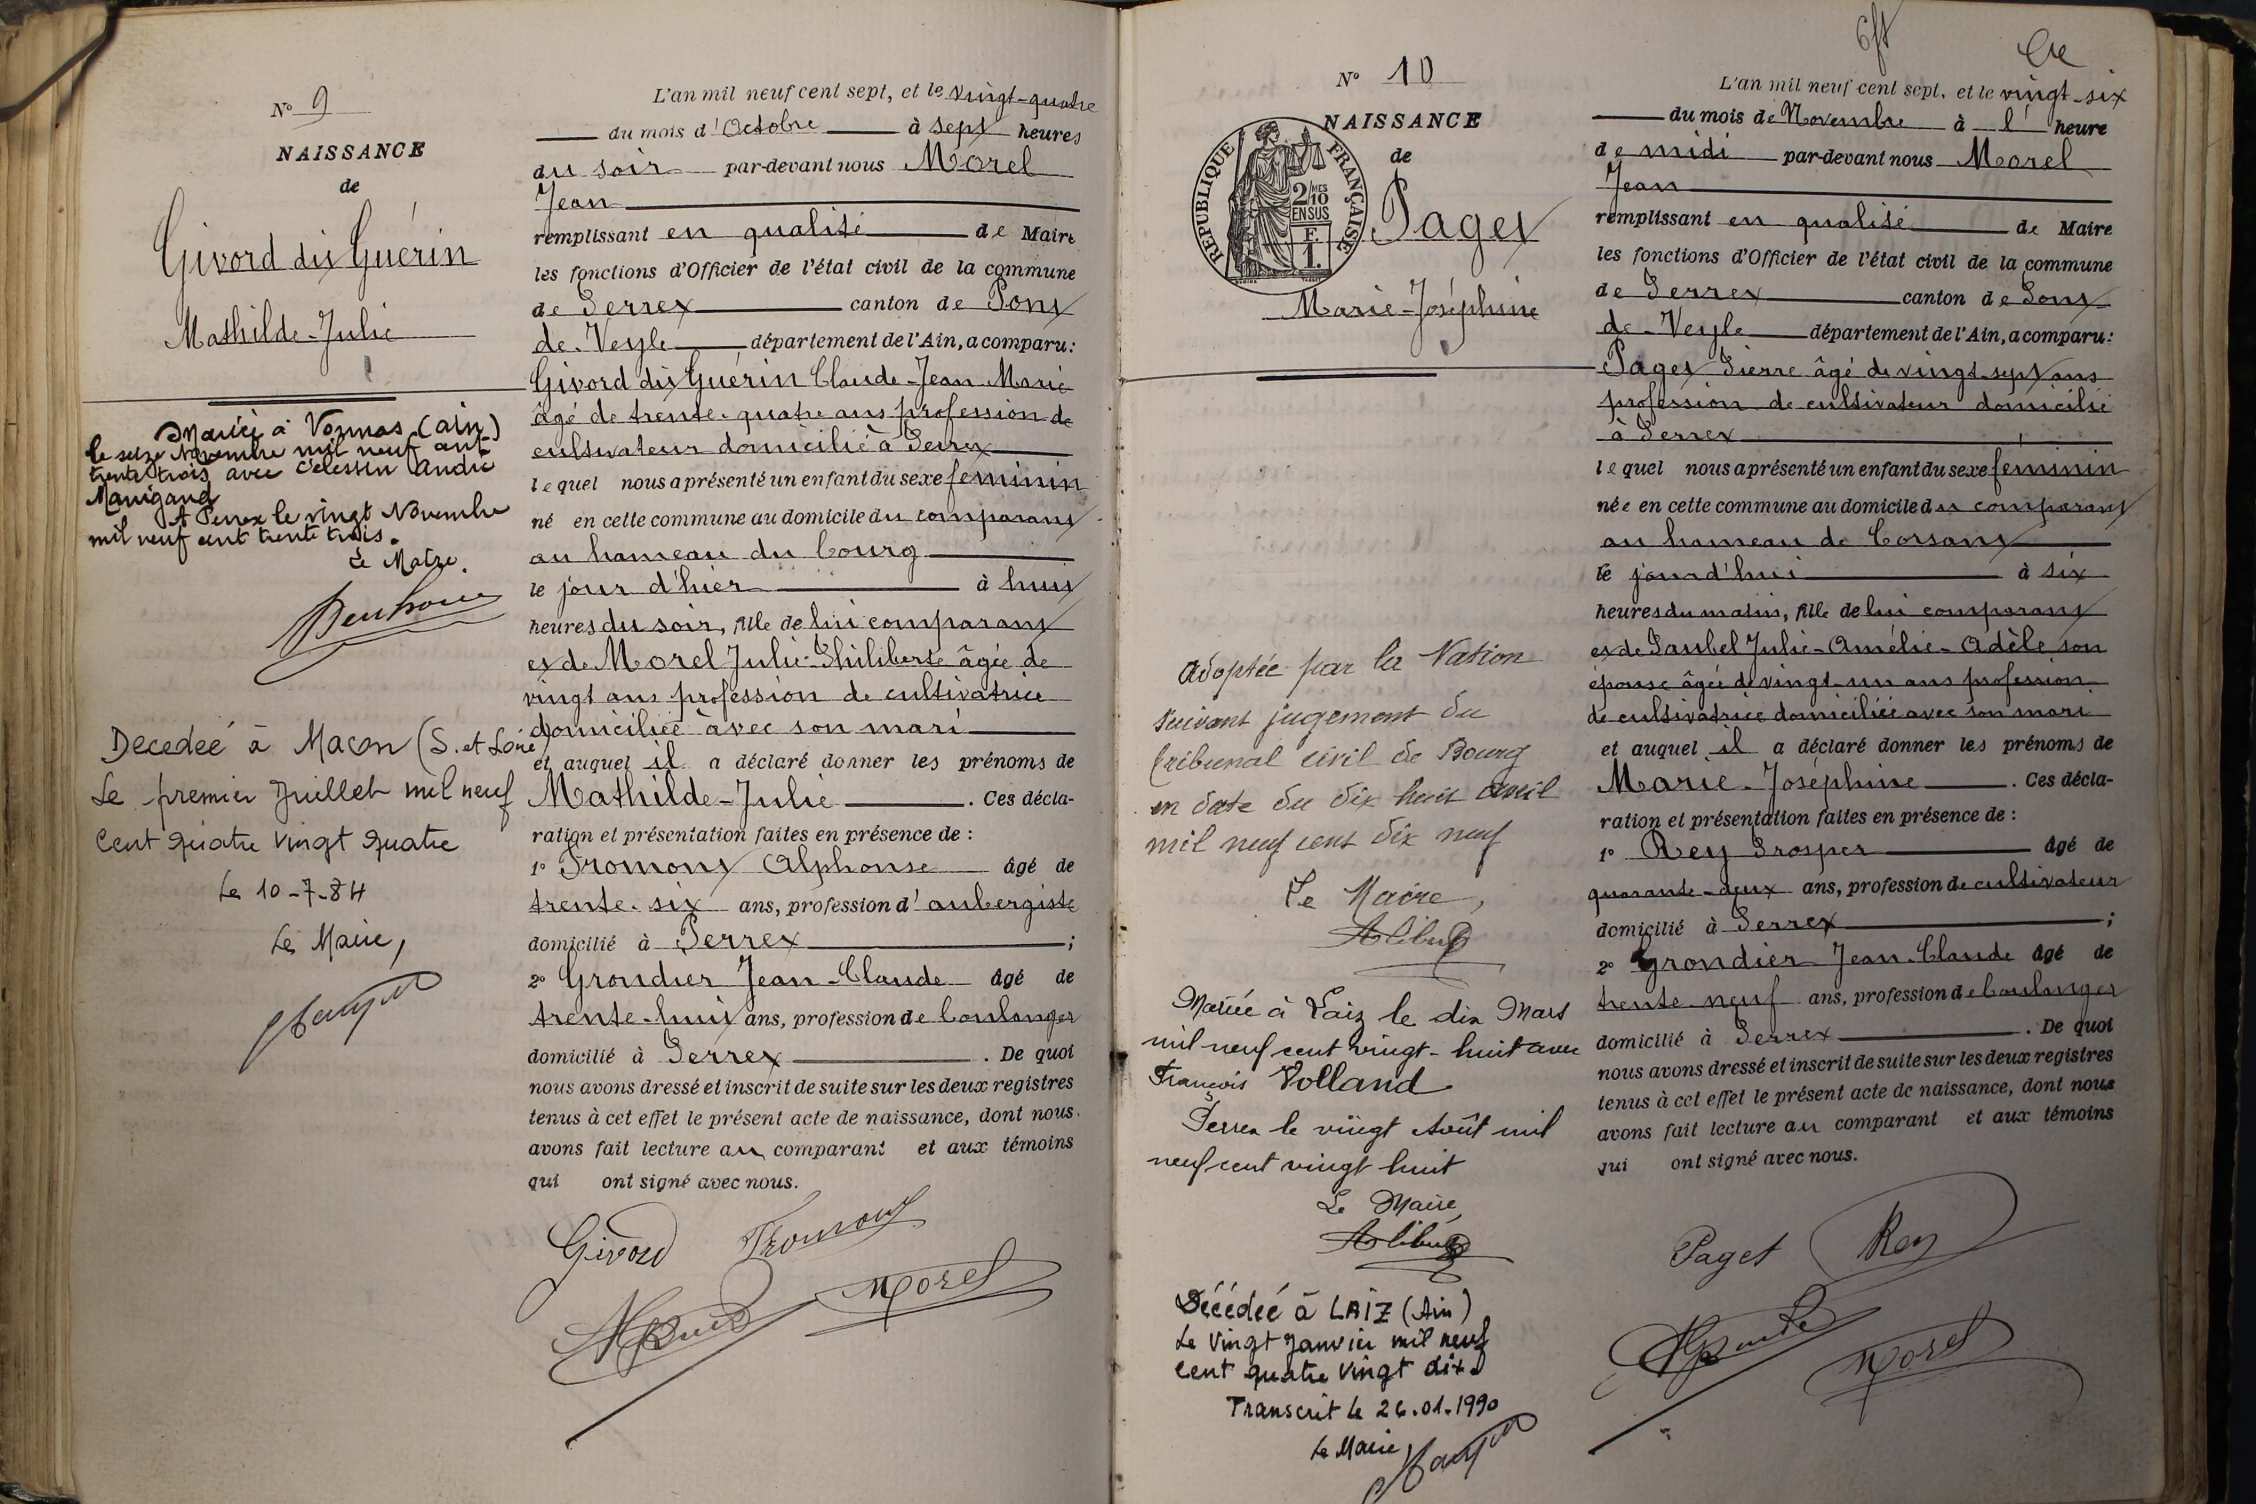 N° 9
NAISSANCE
de
Givord dit Guérin
Mathilde-Julie
Mariée à Vonnas (Ain)
le seize Novembre mil neuf cent
trente trois avec Célestin André
Manigand
A Perrex le vingt Novembre
mil neuf cent trente trois.
Le Maire.
Décédée à Macon (S. et Loire)
Le premier Juillet mil neuf
Cent quatre vingt quatre
Le 10-7-84
Le Maire,
L'an mil neuf cent sept, et le vingt-quatre
du mois d'Octobre à sept heures
du soir par-devant nous Morel
Jean
remplissant en qualité de Maire
les fonctions d'Officier de l'état civil de la commune
de Perrex canton de Pont
de-Veyle département de l'Ain, a comparu:
Givord dit Guérin Claude-Jean-Marie
âgé de trente-quatre ans profession de
cultivateur domicilié à Perrex
lequel nous a présenté un enfant du sexe féminin
né en cette commune au domicile du comparant
au hameau du bourg
le jour d'hier à huit
heures du soir, fille de lui comparant
et de Morel Julie-Philiberte âgée de
vingt ans profession de cultivatrice
domiciliée avec son mari
et auquel il a déclaré donner les prénoms de
Mathilde-Julie . Ces décla-
ration et présentation faites en présence de :
1° Fromont Alphonse âgé de
trente-six ans, profession d'aubergiste
domicilié à Perrex ;
2° Grondier Jean-Claude âgé de
trente-huit ans, profession de boulanger
domicilié à Perrex . De quoi
nous avons dressé et inscrit de suite sur les deux registres
tenus à cet effet le présent acte de naissance, dont nous
avons fait lecture au comparant et aux témoins
qui ont signé avec nous.
Givord Fromont
Morel
N° 10
NAISSANCE
de
RÉPUBLIQUE FRANÇAISE
2/10 EN SUS
F. 1.
Paget
Marie-Joséphine
Adoptée par la Nation
suivant jugement du
tribunal civil de Bourg
en date du dix huit avril
mil neuf cent dix neuf
Le Maire,
Mariée à Laiz le dix Mars
mil neuf cent vingt-huit avec
François Volland
Perrex le vingt Août mil
neuf cent vingt huit
Le Maire,
Décédée à LAIZ (Ain)
Le vingt Janvier mil neuf
cent quatre vingt dix
Transcrit le 26.01.1990
Le Maire
L'an mil neuf cent sept, et le vingt-six
du mois de Novembre à l' heure
de midi par-devant nous Morel
Jean
remplissant en qualité de Maire
les fonctions d'Officier de l'état civil de la commune
de Perrex canton de Pont
de-Veyle département de l'Ain, a comparu:
Paget Pierre âgé de vingt-sept ans
profession de cultivateur domicilié
à Perrex
lequel nous a présenté un enfant du sexe féminin
née en cette commune au domicile du comparant
au hameau de Corsant
le jourd'hui à six
heures du matin, fille de lui comparant
et de Paubel Julie-Amélie-Adèle son
épouse âgée de vingt-un ans profession
de cultivatrice domiciliée avec son mari
et auquel il a déclaré donner les prénoms de
Marie-Joséphine . Ces décla-
ration et présentation faites en présence de :
1° Rey Prosper âgé de
quarante-deux ans, profession de cultivateur
domicilié à Perrex ;
2° Grondier Jean-Claude âgé de
trente-neuf ans, profession de boulanger
domicilié à Perrex . De quoi
nous avons dressé et inscrit de suite sur les deux registres
tenus à cet effet le présent acte de naissance, dont nous
avons fait lecture au comparant et aux témoins
qui ont signé avec nous.
Paget Rey
Morel